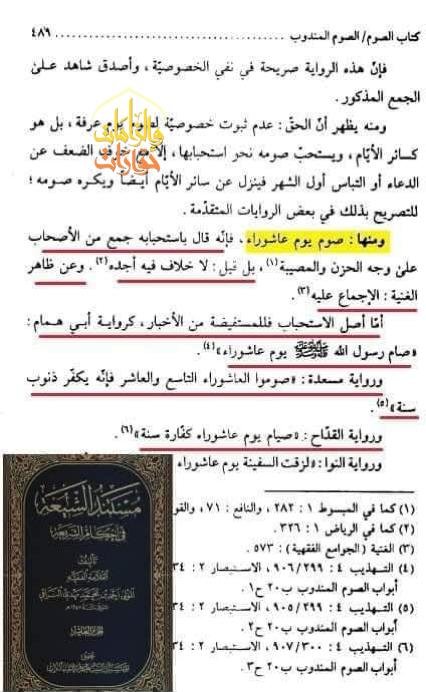 كتاب الصوم/الصوم المندوب ........................ ٤٨٩
فإنّ هذه الرواية صريحة في نفي الخصوصيّة ، وأصدق شاهد على
الجمع المذكور .
ومنه يظهر أنّ الحقّ : عدم ثبوت خصوصيّة لصوم يوم عرفة ، بل هو
كسائر الأيّام ، ويستحبّ صومه نحو استحبابها ، إلّا مع خوف الضعف عن
الدعاء أو التباس أوّل الشهر فينزل عن سائر الأيّام أيضاً ويكره صومه ؛
للتصريح بذلك في بعض الروايات المتقدّمة .
ومنها : صوم يوم عاشوراء ، فإنّه قال باستحبابه جمع من الأصحاب
على وجه الحزن والمصيبة (١) ، بل قيل : لا خلاف فيه أجده (٢) . وعن ظاهر
الغنية : الإجماع عليه (٣) .
أمّا أصل الاستحباب فللمستفيضة من الأخبار ، كرواية أبي همام :
«صام رسول الله ﷺ يوم عاشوراء» (٤) .
ورواية مسعدة : «صوموا العاشوراء التاسع والعاشر فإنّه يكفّر ذنوب
سنة» (٥) .
ورواية القدّاح : «صيام يوم عاشوراء كفّارة سنة» (٦) .
ورواية النوا : «لزقت السفينة يوم عاشوراء
(١) كما في المبسوط ١ : ٢٨٢ ، والنافع : ٧١ ، والقو
(٢) كما في الرياض ١ : ٣٢٦ .
(٣) الغنية (الجوامع الفقهية) : ٥٧٣ .
(٤) التهذيب ٤ : ٩٠٦/٢٩٩ ، الاستبصار ٢ : ٣٤
أبواب الصوم المندوب ب ٢٠ ح ١ .
(٥) التهذيب ٤ : ٩٠٥/٢٩٩ ، الاستبصار ٢ : ٣٤
أبواب الصوم المندوب ب ٢٠ ح ٢ .
(٦) التهذيب ٤ : ٩٠٧/٣٠٠ ، الاستبصار ٢ : ٣٤
أبواب الصوم المندوب ب ٢٠ ح ٣ .
مستند الشيعة
في أحكام الشريعة
تأليف
العلامة الفقيه